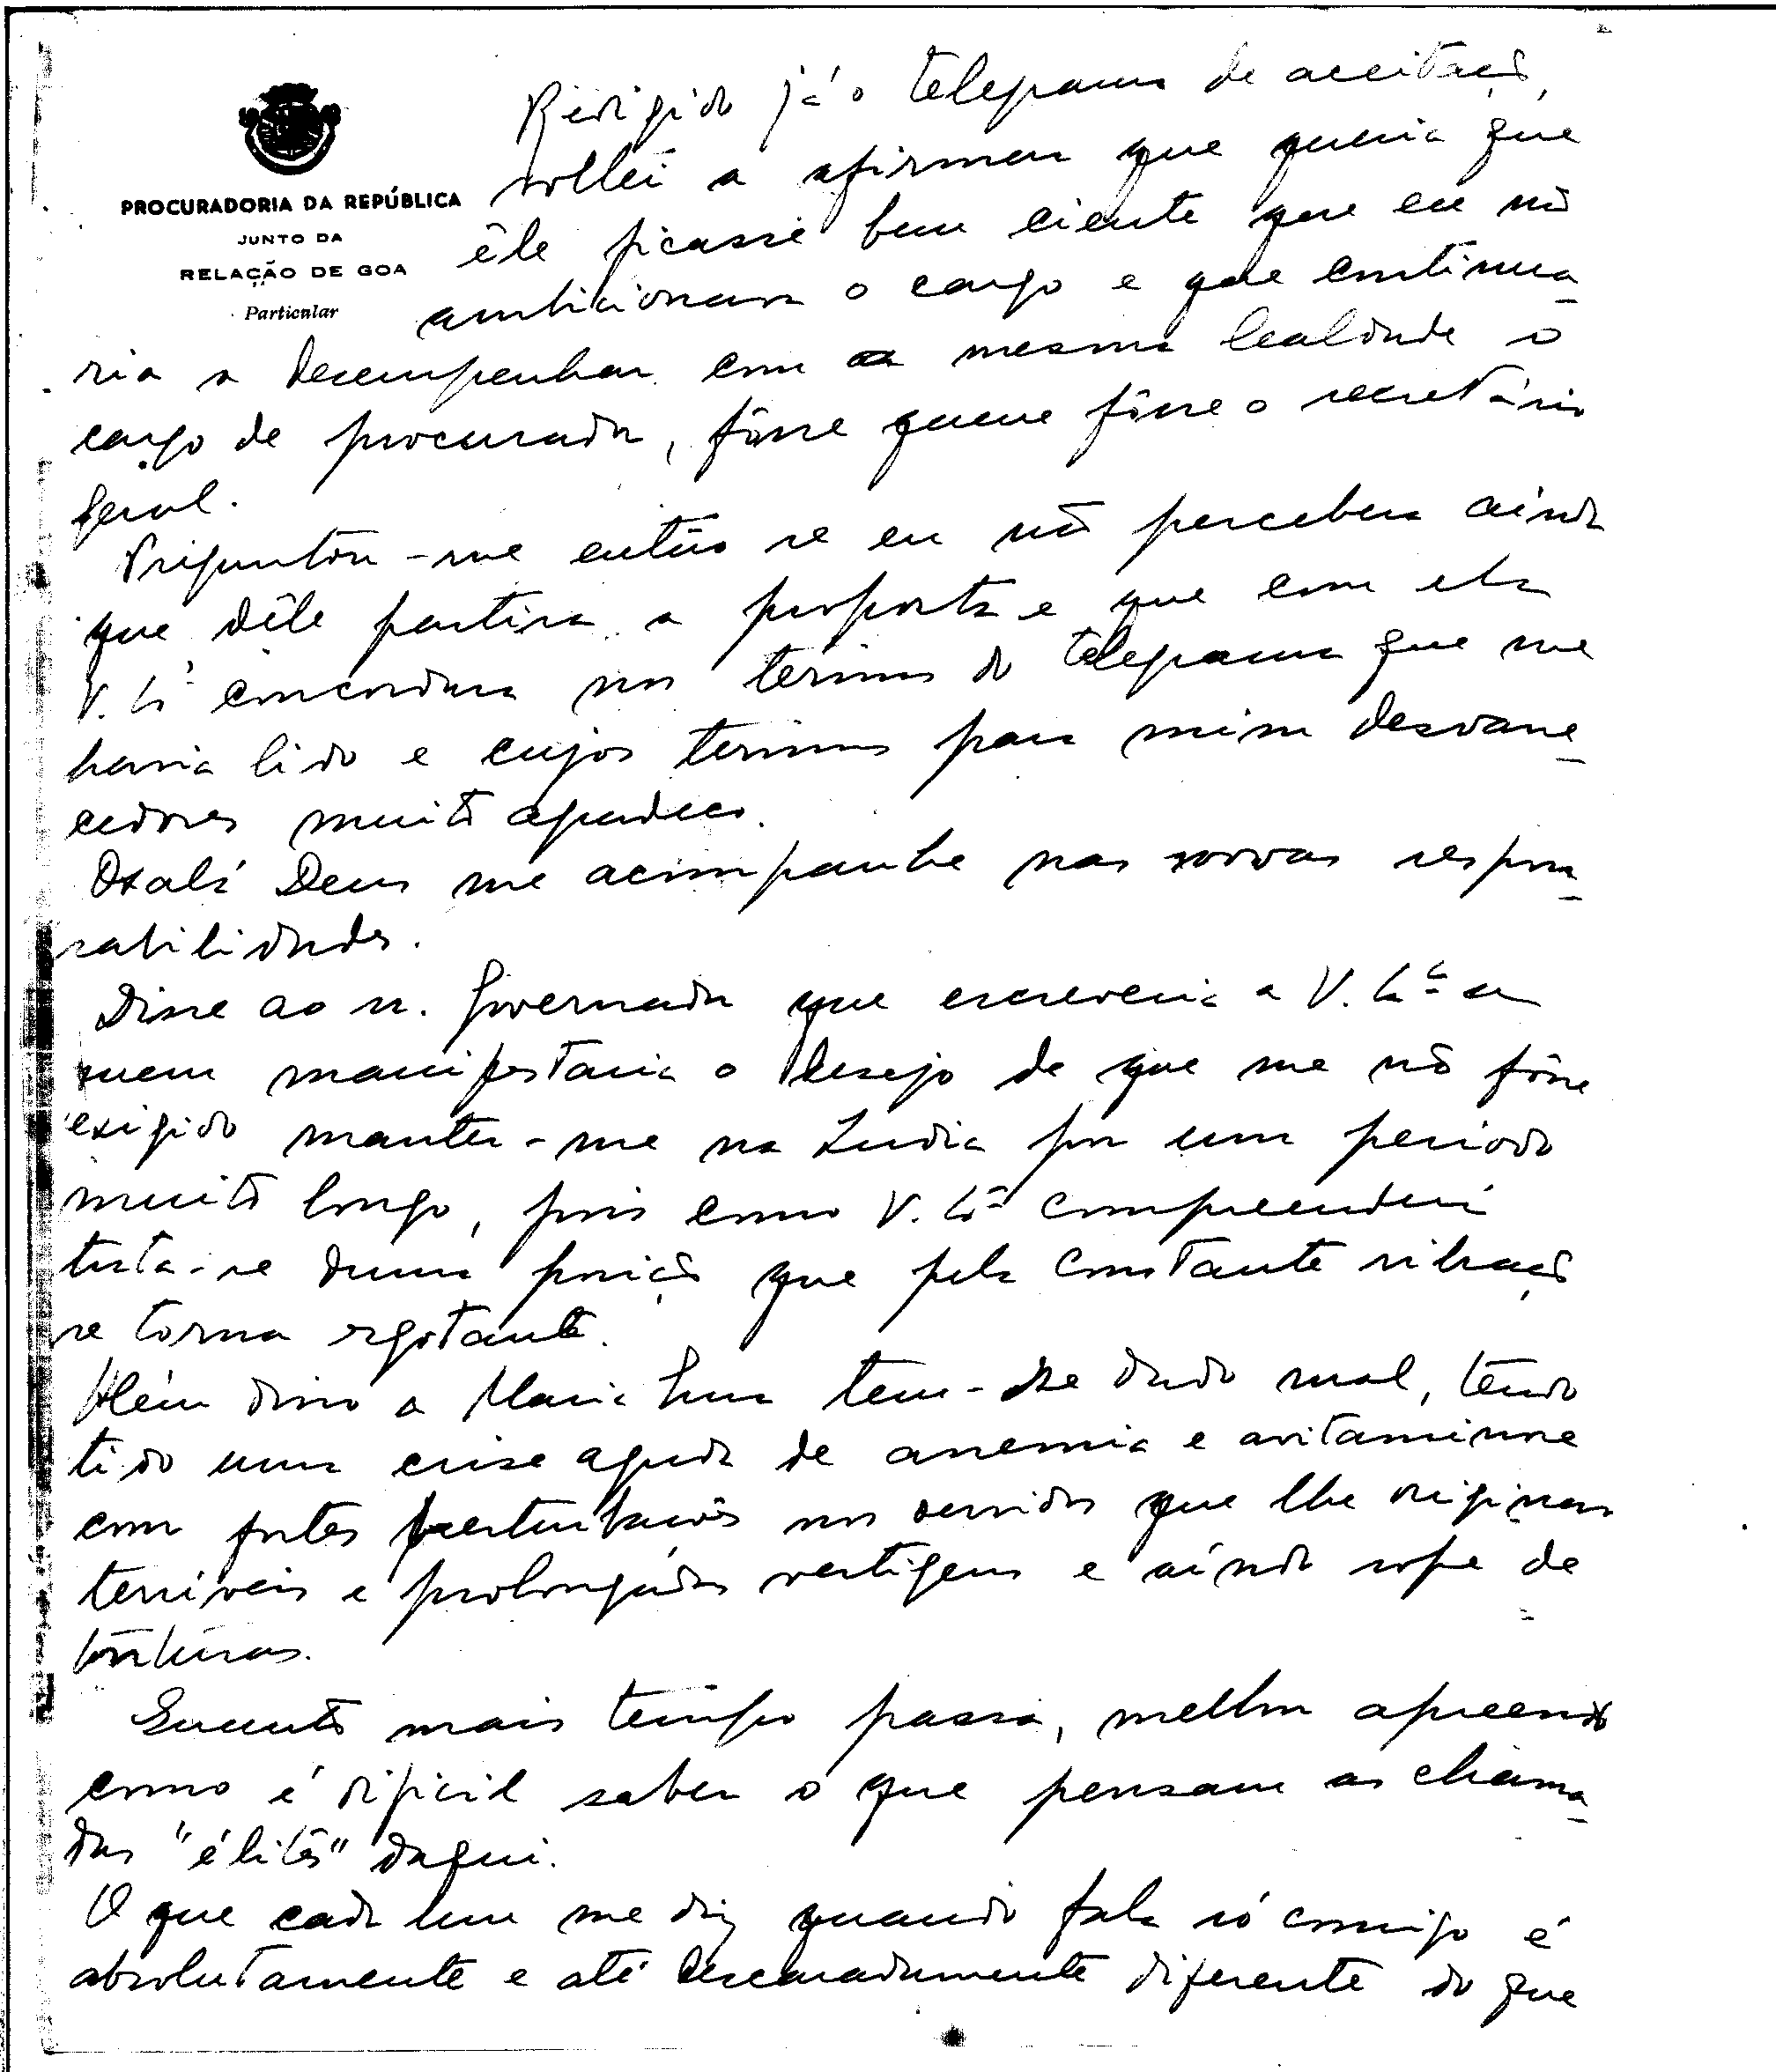 PROCURADORIA DA REPÚBLICA
JUNTO DA
RELAÇÃO DE GOA
Particular
Redigido já o telegrama de aceitação,
voltei a afirmar que queria que
êle ficasse bem ciente que eu não
ambicionava o cargo e que continua-
ria a desempenhar com a mesma lealdade o
cargo de procurador, fôsse quem fôsse o secretário
geral.
Preguntou-me então se eu não percebera ainda
que dêle partira a proposta e que com ela
V. Exª concordara nos termos do telegrama que me
havia lido e cujos termos para mim desvane-
cedores muito agradeço.
Oxalá Deus me acompanhe nas novas respon-
sabilidades.
Disse ao sr. Governador que escreveria a V. Exª a
quem manifestaria o desejo de que me não fôsse
exigido manter-me na India por um periodo
muito longo, pois como V. Exª compreenderá
trata-se duma posição que pela constante vibração
se torna esgotante.
Além disso a Maria Luisa tem-se dado mal, tendo
tido uma crise aguda de anemia e avitaminose
com fortes perturbações nos ouvidos que lhe originam
terriveis e prolongadas vertigens e ainda sofre de
tonturas.
Quanto mais tempo passa, melhor apreendo
como é dificil saber o que pensam as chama-
das "élites" daqui.
O que cada um me diz quando fala só comigo é
absolutamente e até descaradamente diferente do que